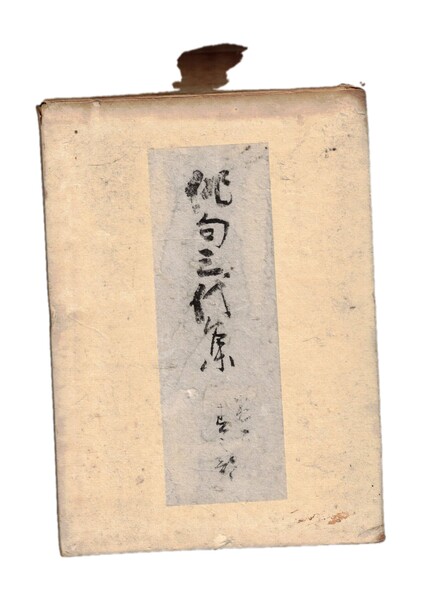 俳句三代集